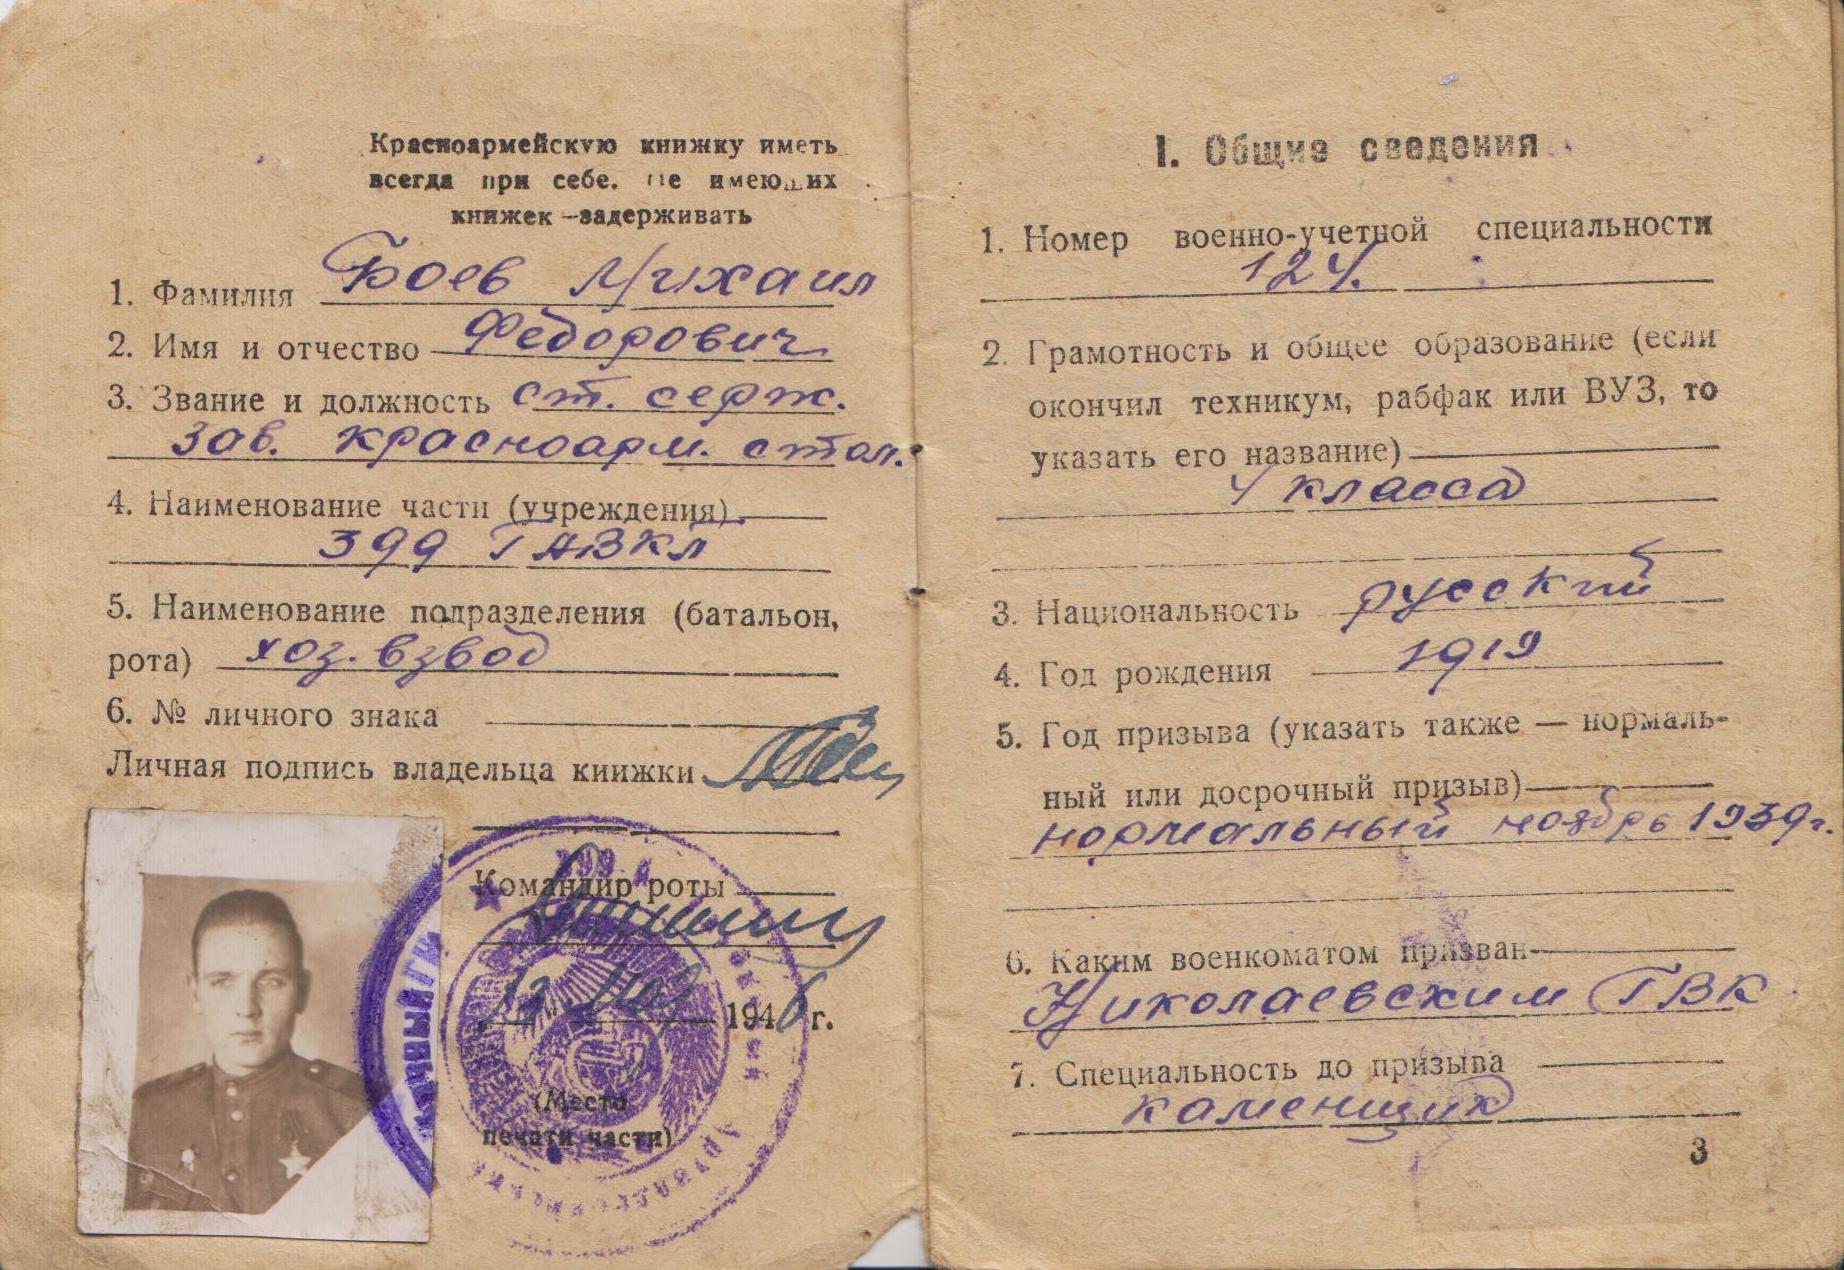 Красноармейскую книжку иметь
всегда при себе. Не имеющих
книжек —задерживать
1. Фамилия Боев Михаил
2. Имя и отчество Федорович
3. Звание и должность ст. серж.
зав. красноарм. стол.
4. Наименование части (учреждения)
399 ГАВКЛ
5. Наименование подразделения (батальон,
рота) хоз. взвод
6. № личного знака
Личная подпись владельца книжки
Командир роты
1946 г.
(Место
печати части)
I. Общие сведения
1. Номер военно-учетной специальности
124.
2. Грамотность и общее образование (если
окончил техникум, рабфак или ВУЗ, то
указать его название)
4 класса
3. Национальность русский
4. Год рождения 1919
5. Год призыва (указать также — нормаль-
ный или досрочный призыв)
нормальный ноябрь 1939 г.
6. Каким военкоматом призван
Николаевским ГВК
7. Специальность до призыва
каменщик
3